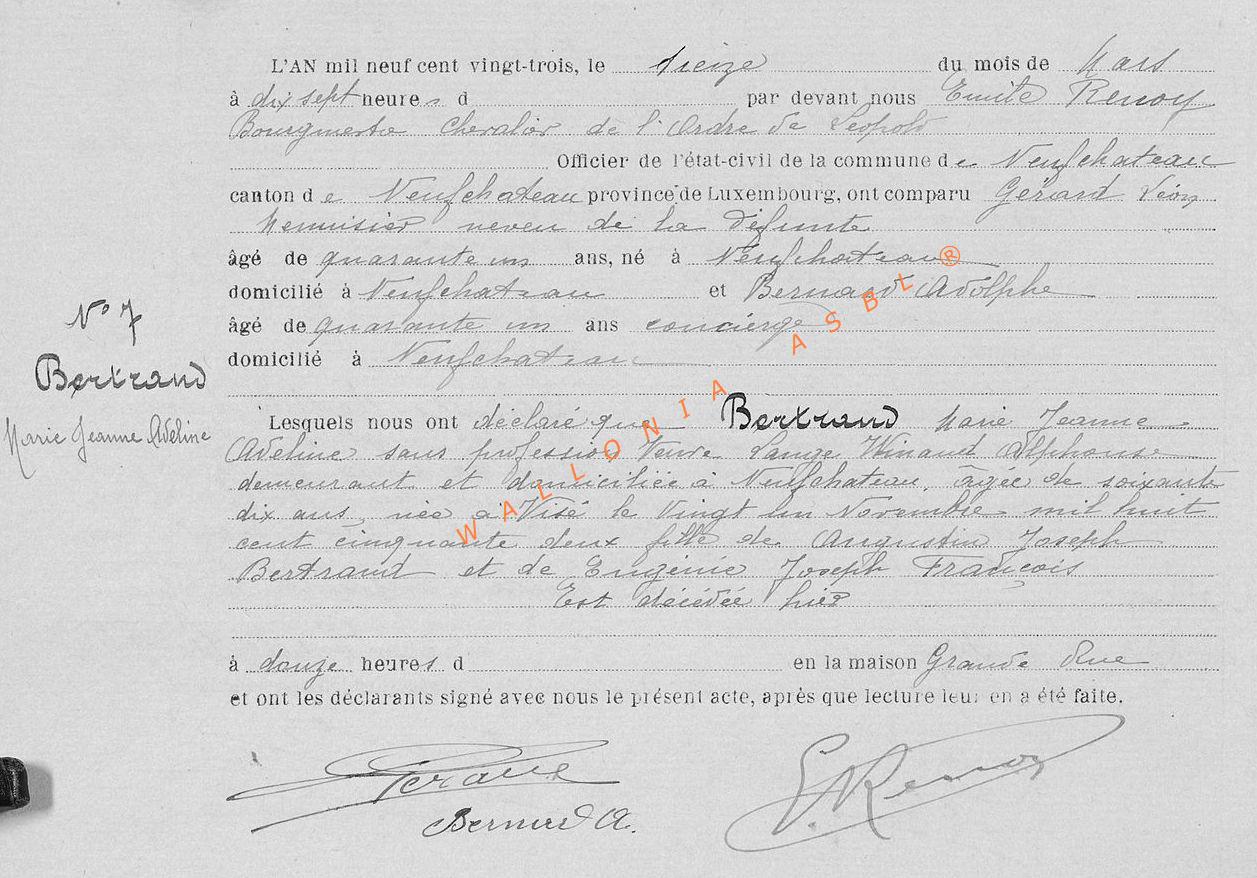 L'AN mil neuf cent vingt-trois, le seize du mois de Mars
à dix sept heures d par devant nous Emile Renoy
Bourgmestre Chevalier de l'Ordre de Léopold
Officier de l'état-civil de la commune de Neufchateau
canton de Neufchateau province de Luxembourg, ont comparu Gérard Léon
Menuisier neveu de la défunte
âgé de quarante un ans, né à Neufchateau
domicilié à Neufchateau et Bernard Adolphe
âgé de quarante un ans concierge
domicilié à Neufchateau
N° 7
Bertrand
Marie Jeanne Adeline
Lesquels nous ont déclaré que Bertrand Marie Jeanne
Adeline sans profession Veuve Winand Alphonse
demeurant et domiciliée à Neufchateau, âgée de soixante
dix ans, née à Visé le Vingt un Novembre mil huit
cent cinquante deux fille de Augustin Joseph
Bertrand et de Eugénie Joseph François
Est décédée hier
à douze heures d en la maison Grande Rue
et ont les déclarants signé avec nous le présent acte, après que lecture leur en a été faite.
Bernard A.
E. Renoy
WALLONIA ASBL ®